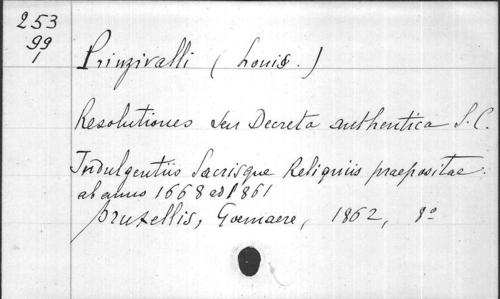 253
99
1
Prinzivalli (Louis.)
Resolutiones seu Decreta authentica S. C.
Indulgentiis Sacrisque Reliquiis praepositae.
ab anno 1668 ad 1861
Bruxellis, Goemaere, 1862, 8o